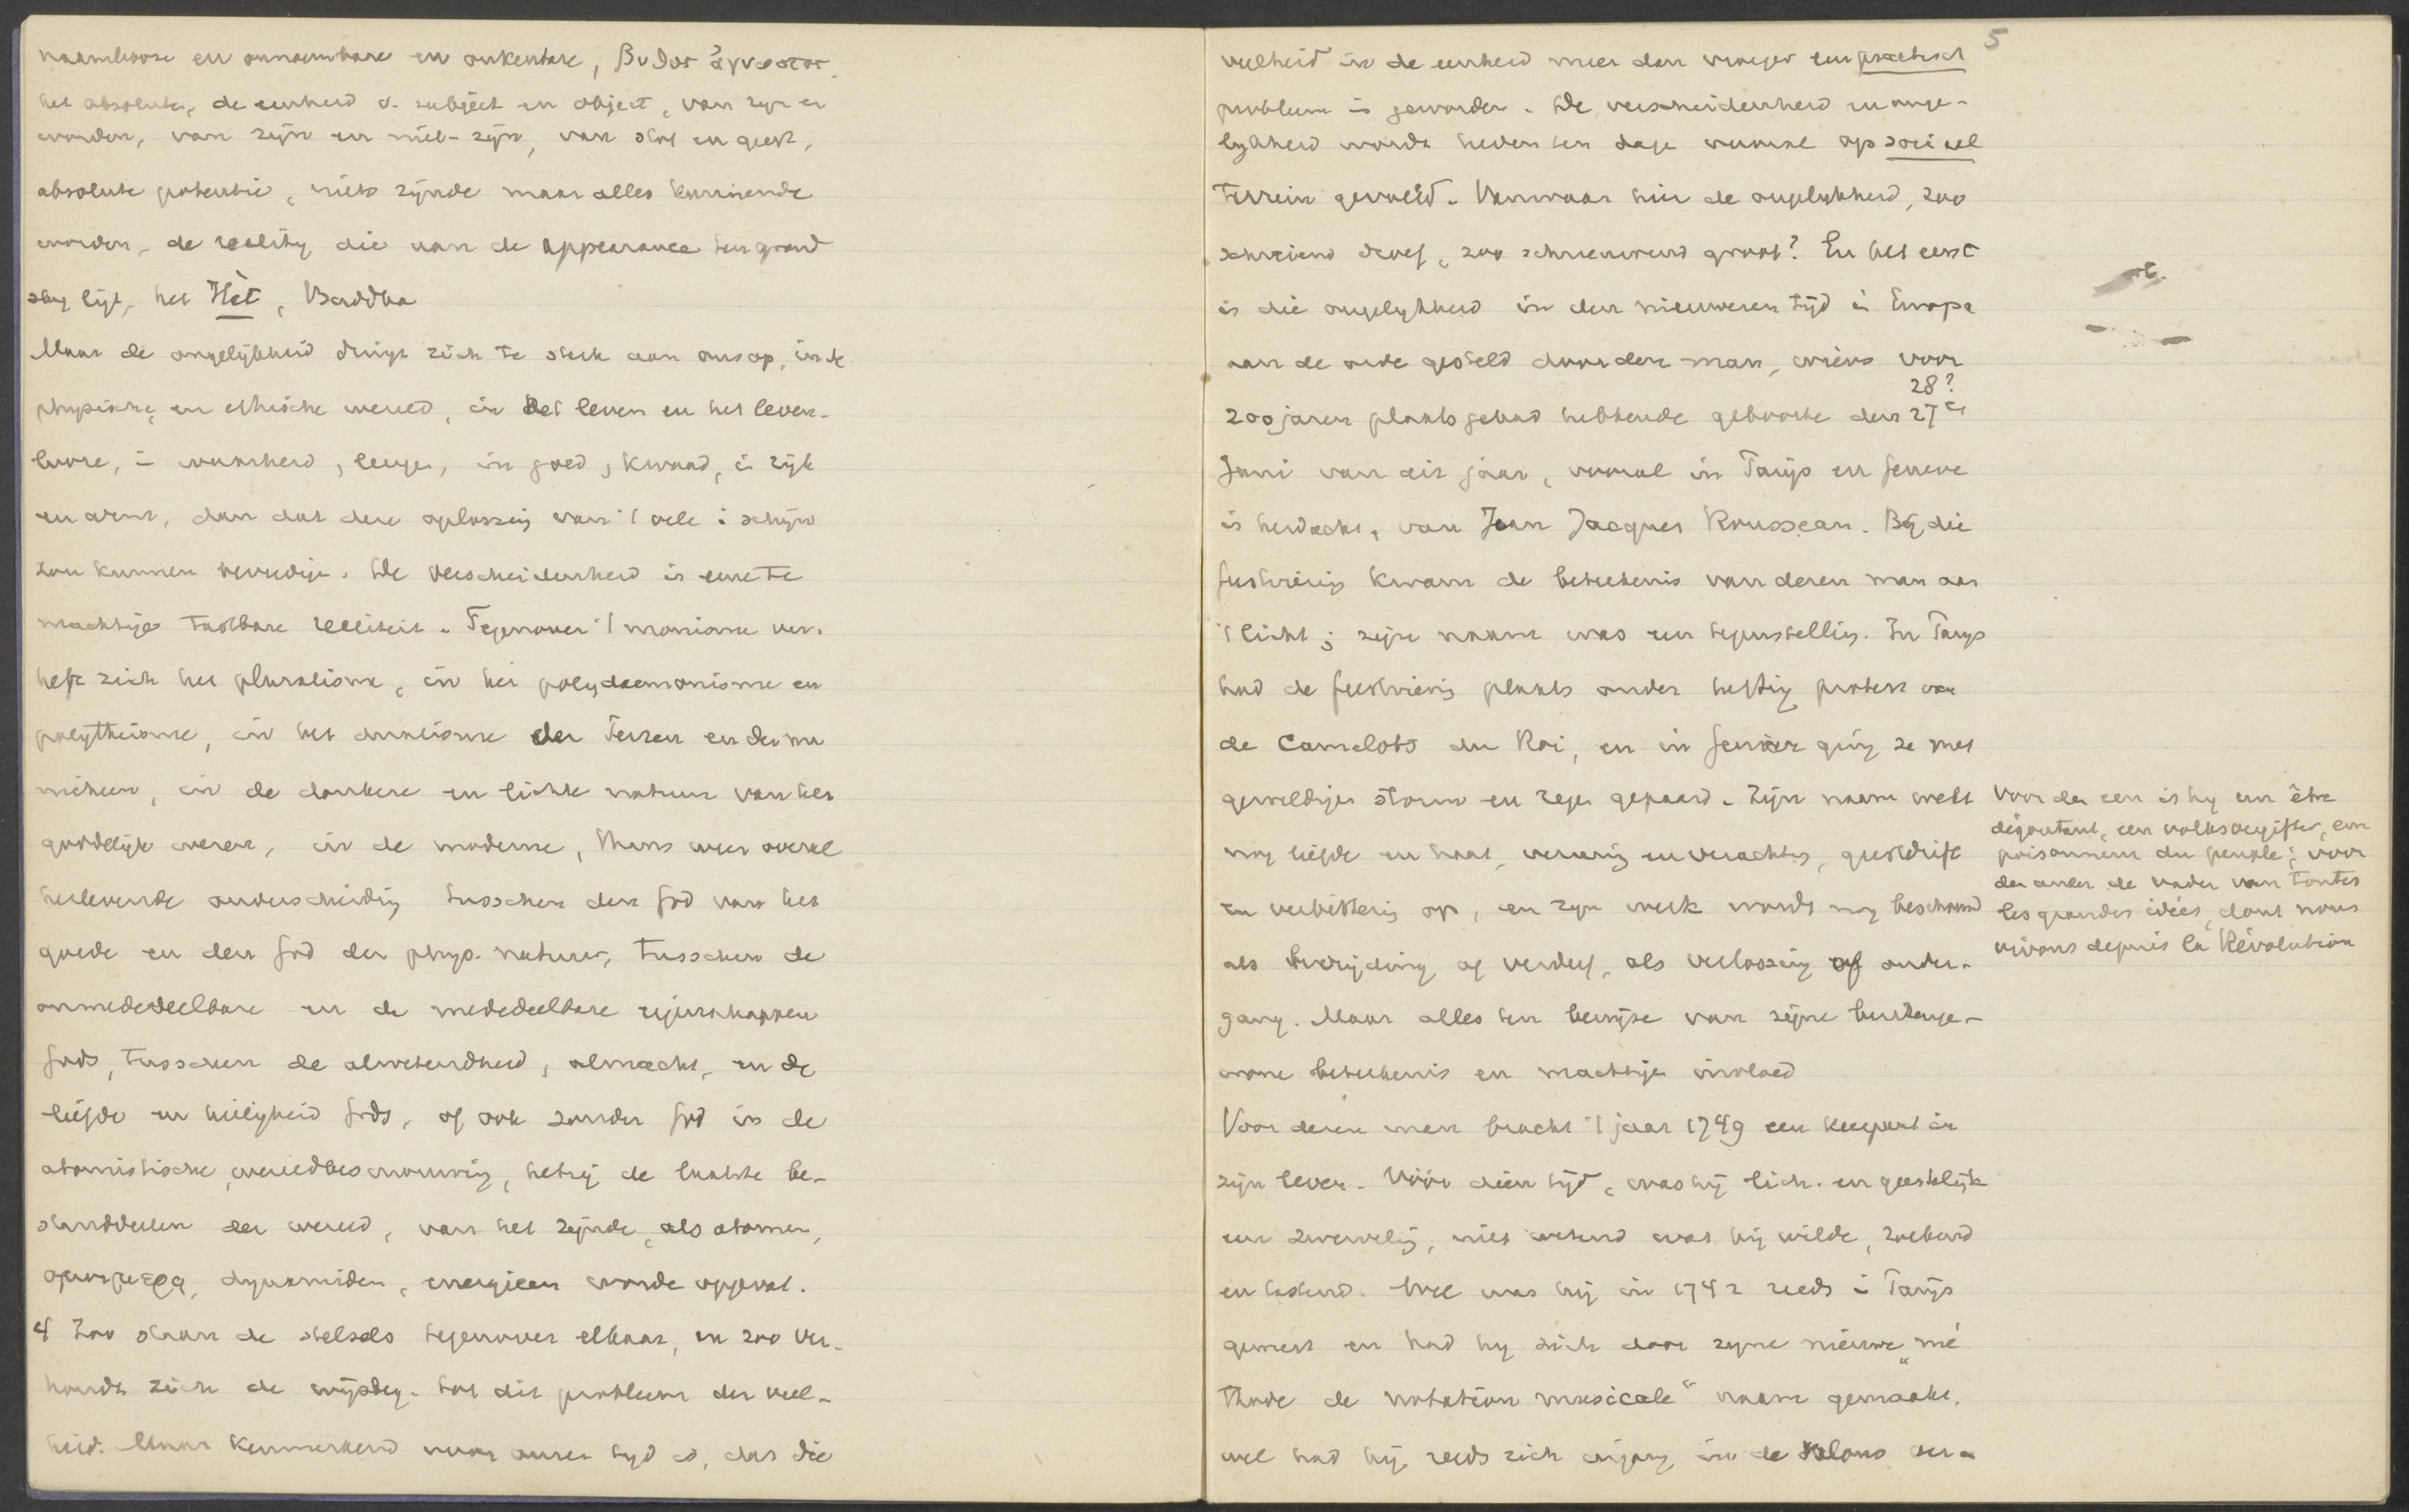 naamlooze en onnoembare en onkenbare, βυθος ἀγνωστος
het absolute, de eenheid v. subject en object, van zijn en
worden, van zijn en niet-zijn, van stof en geest,
absolute potentie, niets zijnde maar alles kunnende
worden, de reality die aan de appearance ten grond
slag ligt, het Hèt, Buddha
Maar de ongelijkheid dringt zich te sterk aan ons op, in de
physische, en ethische wereld, in het leven en het leven-
looze, in waarheid, leugen, in goed, kwaad, in rijk
en arm, dan dat deze oplossing van 't vele in schijn
zou kunnen bevredigen. De verscheidenheid is eene te
machtige tastbare realiteit. Tegenover 't monisme ver-
heft zich het pluralisme, in het polydaemonisme en
polytheisme, in het dualisme der Perzen en der ma
nicheen, in de donkere en lichte natuur van het
goddelijk wezen, in de moderne, thans weer overal
herlevende onderscheiding tusschen den God van het
goede en den God der phys. natuur, tusschen de
onmededeelbare en de mededeelbare eigenschappen
Gods, tusschen de alwetendheid, almacht, en de
liefde en heiligheid Gods, of ook zonder God in de
atomistische wereldbeschouwing, hetzij de laatste be-
standdeelen der wereld, van het zijnde, als atomen,
dynamiden, energieen worde opgevat.
Zoo staan de stelsels tegenover elkaar, en zoo ver-
houdt zich de wijsbeg. tot dit probleem der veel-
heid. Maar kenmerkend voor onzen tijd is, dat die
5
veelheid in de eenheid meer dan vroeger een practisch
probleem is geworden. De verscheidenheid en onge-
lijkheid wordt heden ten dage vooral op sociaal
terrein gevoeld. Vanwaar hier de ongelijkheid, zoo
schreiend droef, zoo schreeuwend groot? En het eerst
is die ongelijkheid in den nieuweren tijd in Europa
aan de orde gesteld door den man, wiens voor
28?
200 jaren plaats gehad hebbende geboorte den 27en
Juni van dit jaar, vooral in Parijs en Geneve
is herdacht, van Jean Jacques Rousseau. Bij die
feestviering kwam de beteekenis van dezen man aan
't licht; zijn naam was een tegenstelling. In Parijs
had de feestviering plaats onder heftig protest van
de Camelots du Roi, en in Geneve ging ze met
geweldigen storm en regen gepaard. Zijn naam wekt
nog liefde en haat, vereering en verachting, geestdrift
en verbittering op, en zijn werk wordt nog beschouwd
als bevrijding of verderf, als verlossing of onder-
gang. Maar alles ten bewijze van zijne buitenge-
wone beteekenis en machtigen invloed
Voor dezen man bracht 't jaar 1749 een keerpunt in
zijn leven. Vóór dien tijd, was hij lich. en geestelijk
een zwerveling, niet wetend wat hij wilde, zoekend
en tastend. Wel was hij in 1742 reeds in Parijs
geweest en had hij zich door zijne nieuwe "mé
thode de notation musicale" naam gemaakt,
wel had hij reeds zich ingang in de salons ver-
Voor den een is hij een être
dégoutant, een volksvergifter, een
poisonneur du peuple; voor
den ander de vader van toutes
les grandes idées, dont nous
vivons depuis la Révolution